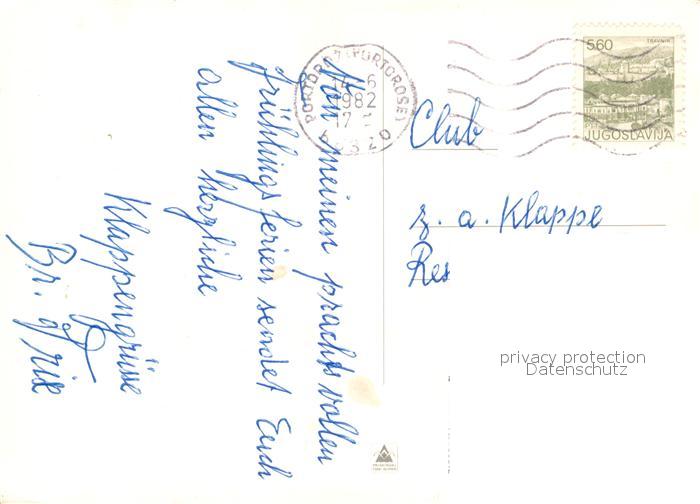 Von meinen prachtvollen
Frühlingsferien sendet Euch
allen herzliche
Klappengrüsse
Br.
PORTOROŽ (PORTOROSE)
6
1982
17
TRAVNIK
5.60
JUGOSLAVIJA
Club
z. a. Klappe
Res
privacy protection
Datenschutz